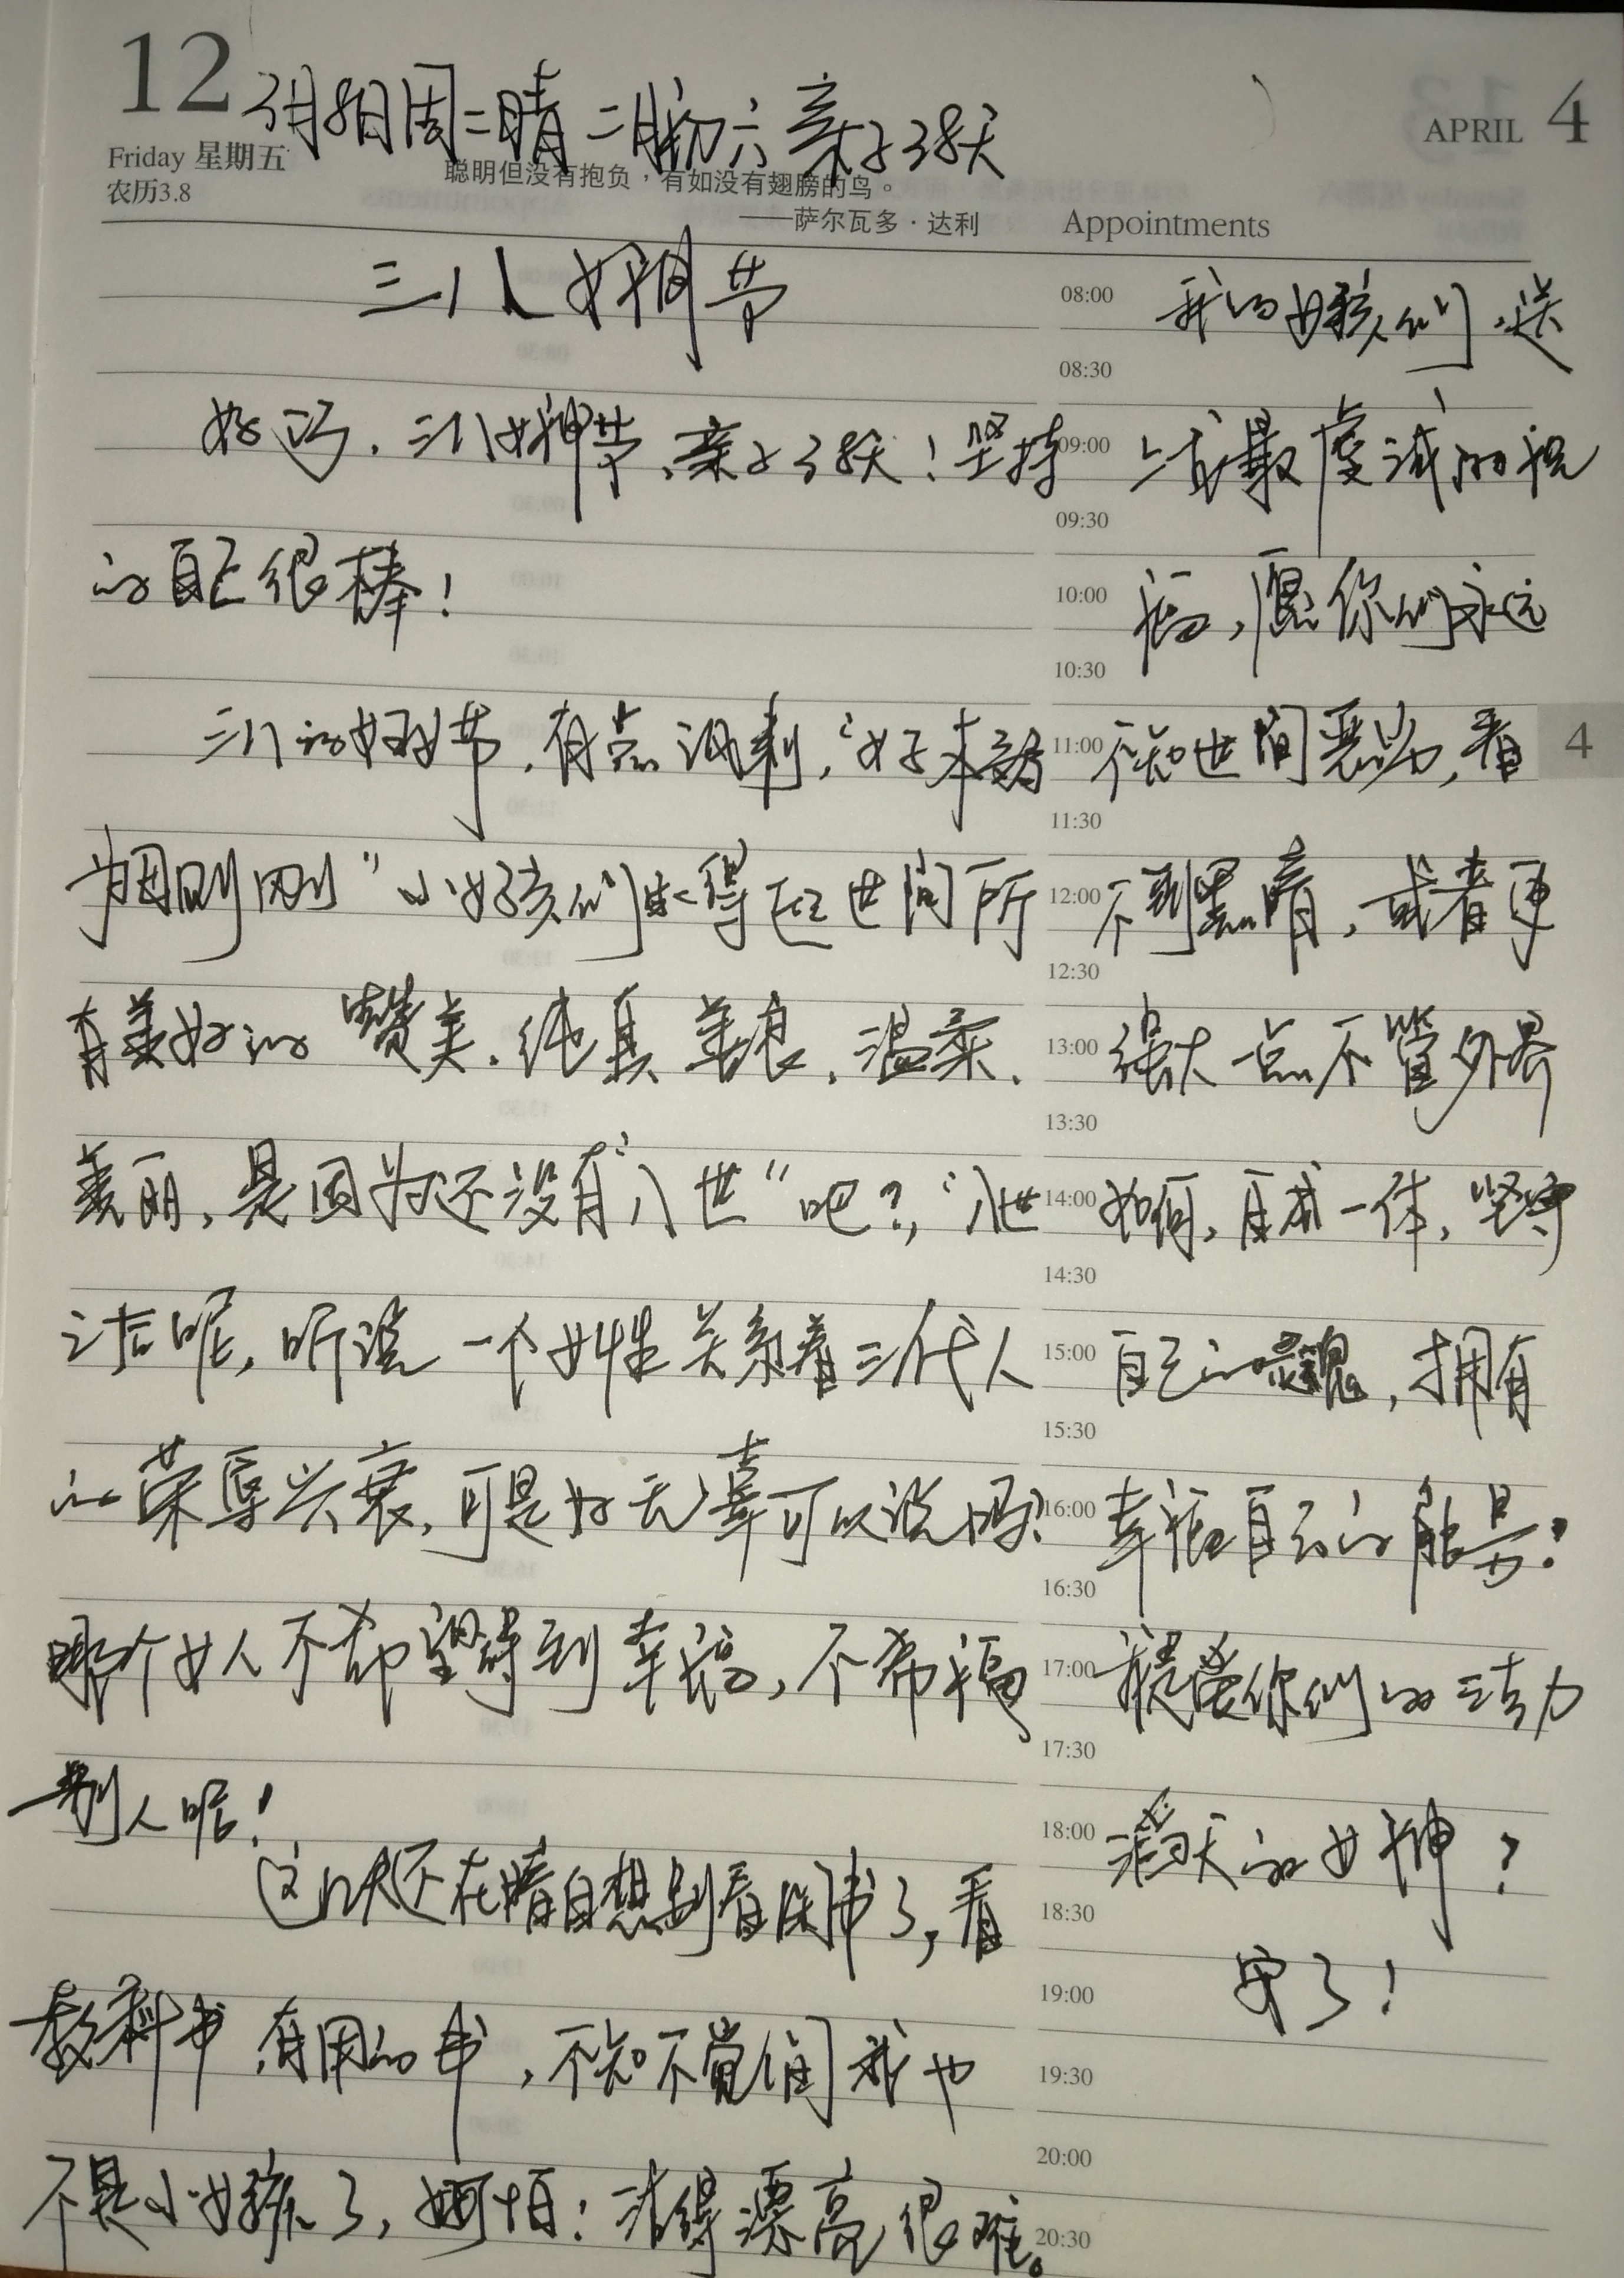 12
3月8日周二晴 二月初六 亲子38天
APRIL 4
Friday 星期五
农历3.8
聪明但没有抱负,有如没有翅膀的鸟。
——萨尔瓦多·达利
Appointments
三八女神节
好巧,三八女神节,亲子38天!坚持
的自己很棒!
三八的妇女节,有点讽刺,"女子本弱
为母则刚"小女孩们能得在世间所
有美好的赞美,纯真,善良,温柔,
美丽,是因为还没有"入世"吧?,"入世
之后呢,听说一个女性关系着三代人
的荣辱兴衰,可是好无辜可以说吗?
哪个女人不希望得到幸福,不希福
别人呢!
这几天还在暗自想别看闲书了,看
教科书 有用的书,不知不觉间我也
不是小女孩了,好可怕!活得漂亮很难。
08:00 我的女孩们,送
08:30
09:00 上我最虔诚的祝
09:30
10:00 福,愿你们永远
10:30
11:00 不知世间恶劣,看
4
11:30
12:00 不到黑暗,或者更
12:30
13:00 强大一点不管外界
13:30
14:00 如何,自成一体,坚守
14:30
15:00 自己的灵魂,拥有
15:30
16:00 幸福自己的能量!
16:30
17:00 你们的活力
17:30
18:00 滔天的女神?
18:30
19:00 安了!
19:30
20:00
20:30